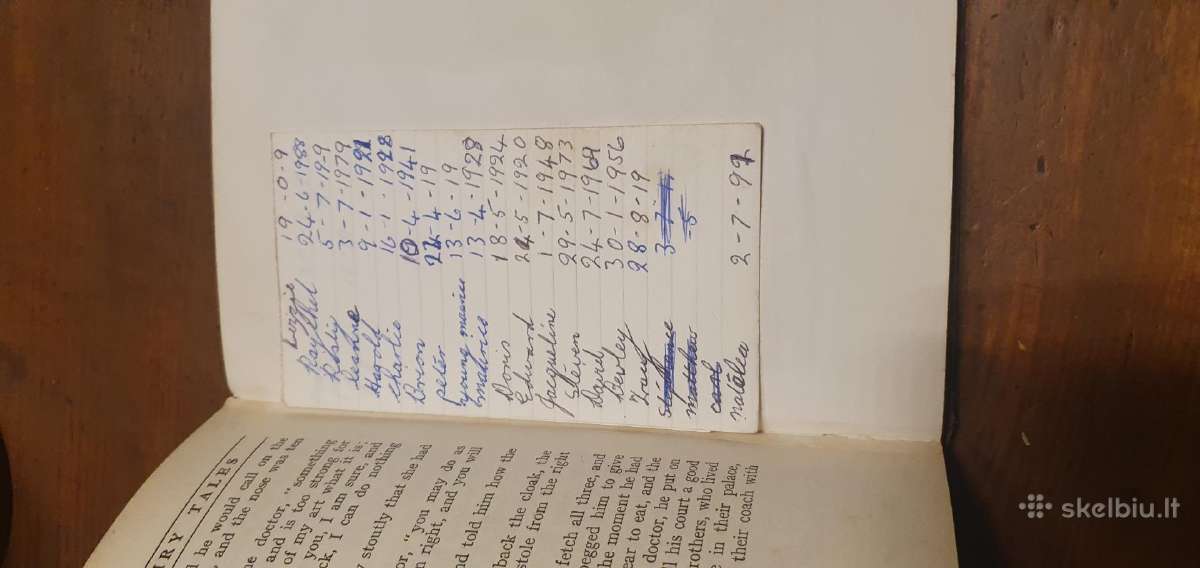 Lizzie 19-0-9
Raythel 24-6-1988
5-7-19-9
Leanne 3-7-1979
Harold 9-1-1921
Charlie 16-1-1928
Brion 10-4-1941
peter 24-4-19
young maurice 13-6-19
maurice 13-4-1928
Doris 18-5-1924
Edward 24-5-1920
Jacqueline 1-7-1948
Steven 29-5-1973
Darrel 24-7-1969
Bevley 30-1-1956
28-8-19
3-7
5
natalea 2-7-99
IRY TALES
he would call on the
and the nose was ten
e doctor, "something
and is too strong for
of my art what it is:
you, I am sure, and
ck, I can do nothing
y stoutly that she had
or, "you may do as
n right, and you will
nd told him how the
back the cloak, the
stole from the right
fetch all three, and
begged him to give
he moment he had
ear to eat, and the
doctor, he put on
ll his court a good
rothers, who lived
e in their palace,
their coach with
skelbiu.lt